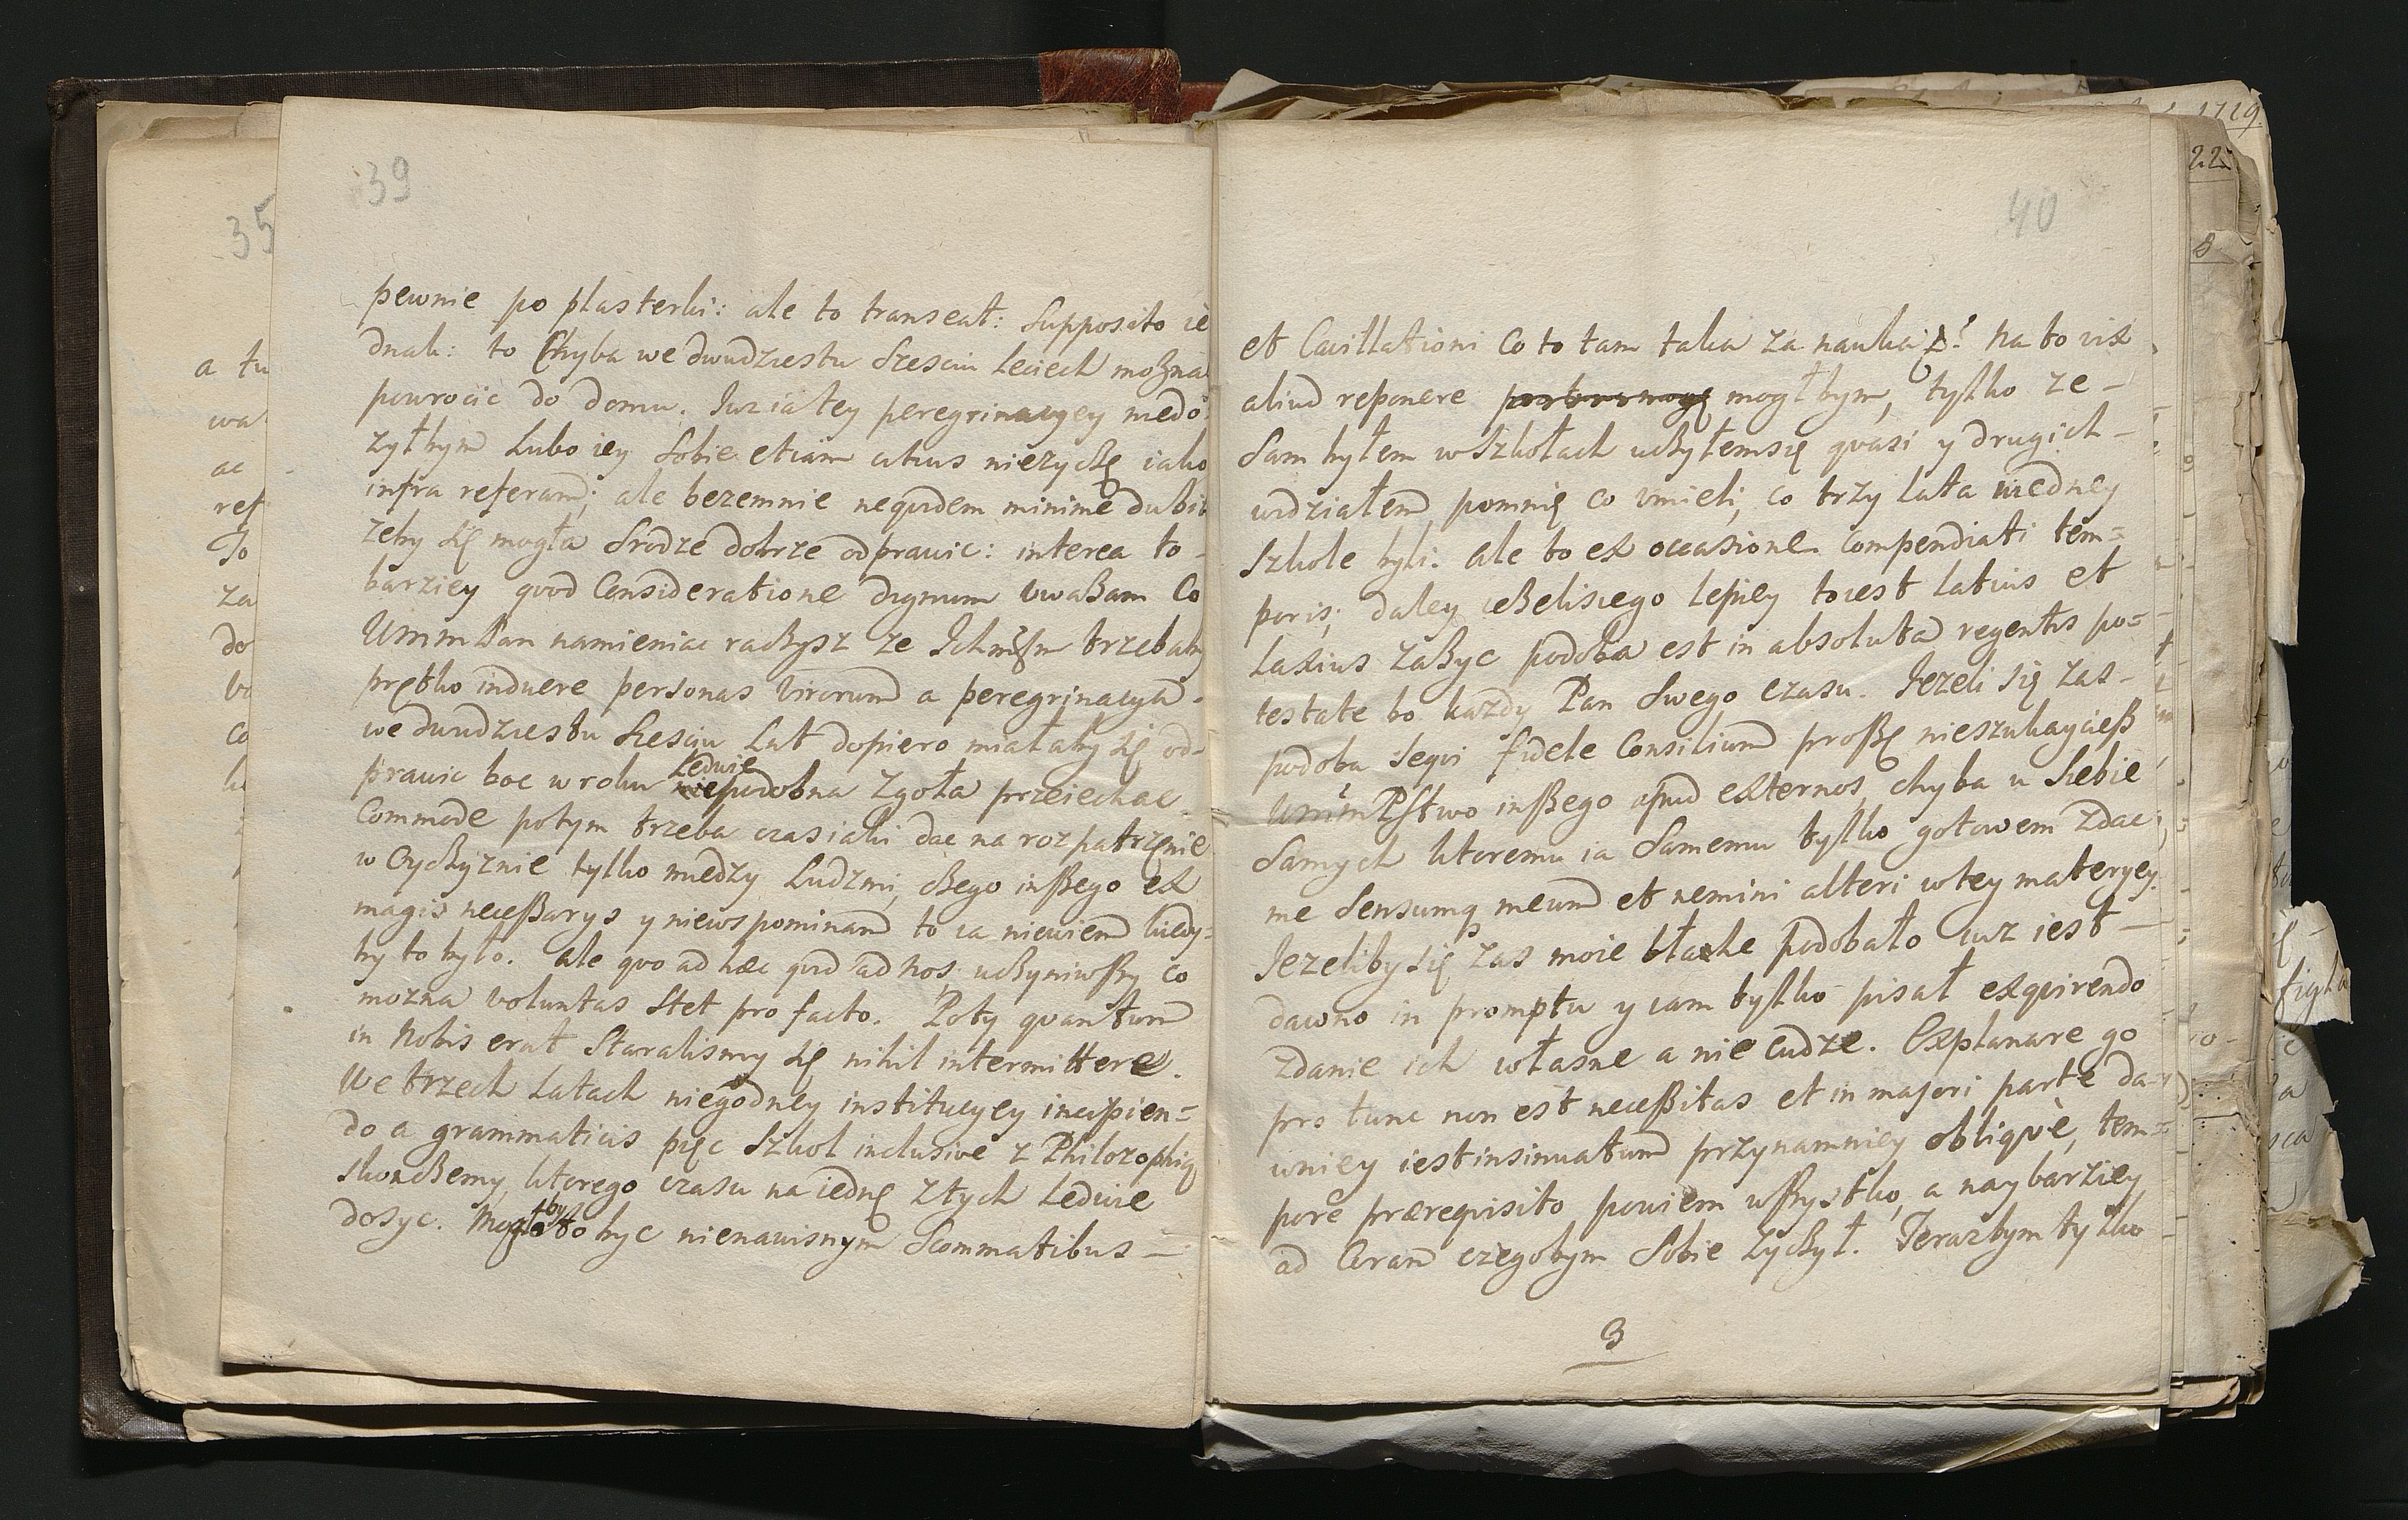 39
pewnie po plasterki: ale to transeat: Supposito ie
dnak: to Chyba we dwudziestu Szesciu leciech mozna
powrocic do domu. Iuz ia tey peregrinacyey niedo
zyłbym Lubo iey Sobie etiam citius nie zyczę iako
infra referam; ale bezemnie nequidem minime dubit
zeby się mogła Srodze dobrze odprawic: interea to
barziey quod Consideratione dignum vwaßam Co
Wmm Pan namieniac raczysz ze Ichmm trzebaby
prętko induere personas Virorum a peregrinacya
we dwudziestu Szesciu Lat dopiero miałaby się od-
prawic boc w roku Ledwie podobna Zgoła przeiechac
Commode potym trzeba czas iaki dac na rozpatrzenie
w Oyczyznie tylko miedzy Ludzmi, czego inßego ex
magis neceßarys y niewspominam to ia niewiem kiedy-
by to było. Ale quo ad haec quid ad nos, uczyniwßy co
mozna voluntas Stet pro facto. Poty quantum
in Nobis erat Staralismy się nihil intermittere.
We trzech Latach niegodney institucyey incipien=
do a grammaticis pięc Szkol inclusive z Philozophią
skonczemy, ktorego czasu na iednę z tych Ledwie
dosyc. Mogłoby to byc nienawisnym Scommatibus —
40
et Cavillationi Co to tam taka za nauka? Na to vix
aliud reponere mogłbym, tylko ze —
Sam byłem w Szkołach uczyłem się quasi y drugich —
widziałem, pomnię co vmieli, co trzy lata w iedney
Szkole byli. Ale to ex occasione Compendiati tem=
poris; daley ieżeli się go lepiey to iest latius et
laxius zażyc podoba est in absoluta regentis po=
testate bo kazdy Pan Swego czasu. Iezeli się zas —
podoba sequi fidele Consilium proßę nieszukaycieß
WmmPstwo inßego apud externos, chyba u Siebie
Samych ktoremu ia Samemu tylko gotowem zdac
me Sensumq meum et nemini alteri w tey materyey.
Iezeliby się zas moie błache podobało iuz iest —
dawno in promptu y iam tylko pisał exquirendo
zdanie ich własne a nie cudze. Explanare go
pro tunc non est neceßitas et in majori parte da-
wniey iest insinuatum przynamniey obliquè, tem=
pore praerequisito powiem wßystko, a naybarziey
ad Curam czegobym Sobie zyczył. Terazbym tylko
3
35
a tu
wa
ac
ref
To
za
do
co
1729
22